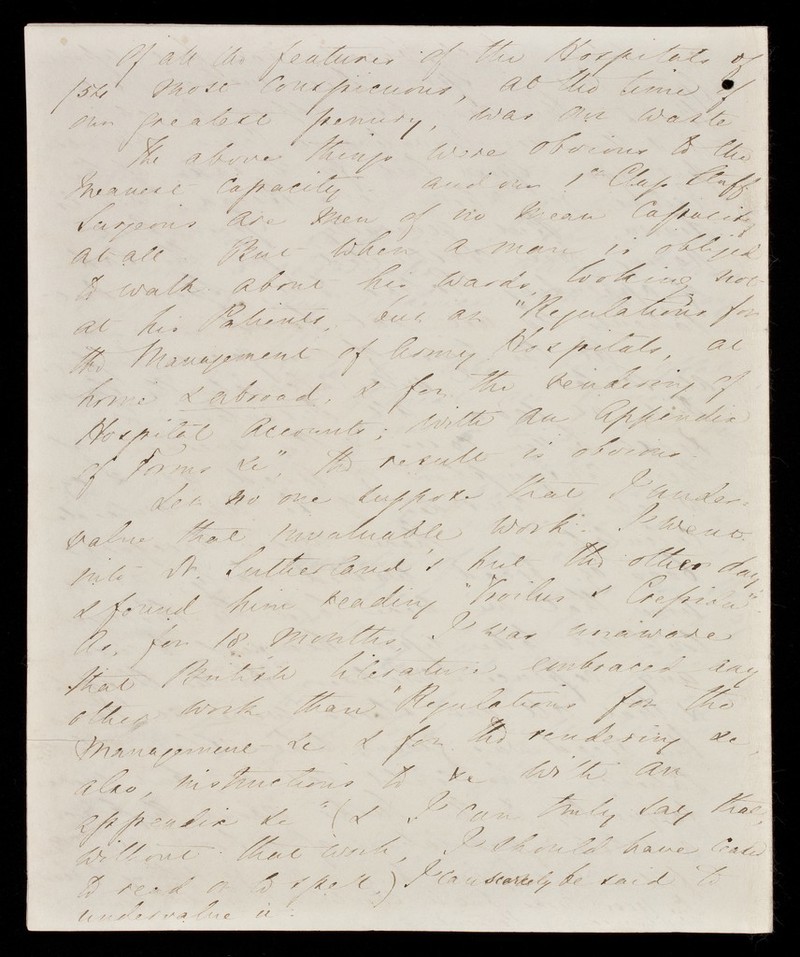 Of all the features of the Hospitals of
/54 most conspicuous, at the time of
our greatest penury, was our waste
The above things were obvious to the
meanest capacity and our 1st Class Staff
Surgeons are men of no mean capacity
at all. But when a man is obliged
to walk about his wards, looking not
at his Patients, but at "Regulations for
the Management of Army Hospitals, at
home & abroad, & for the rendering of
Hospital Accounts; with an Appendix
of Forms &c", the result is obvious.
Let no one suppose that I under-
value that invaluable work. I went
into Dr. Sutherland's hut the other day
& found him reading "Troilus & Cressida".
As, for 18 months, I was unaware
that British literature embraced any
other work than "Regulations for the
Management &c & for the rendering &c,
also, instructions to &c with an
appendix &c" (& I can truly say that,
without that work, I should have ceased
to read or to spell,) I can scarcely be said to
undervalue it.